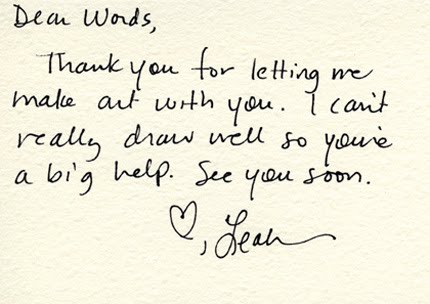 Dear Words,
Thank you for letting me
make art with you. I can't
really draw well so you're
a big help. See you soon.
♡, Leah